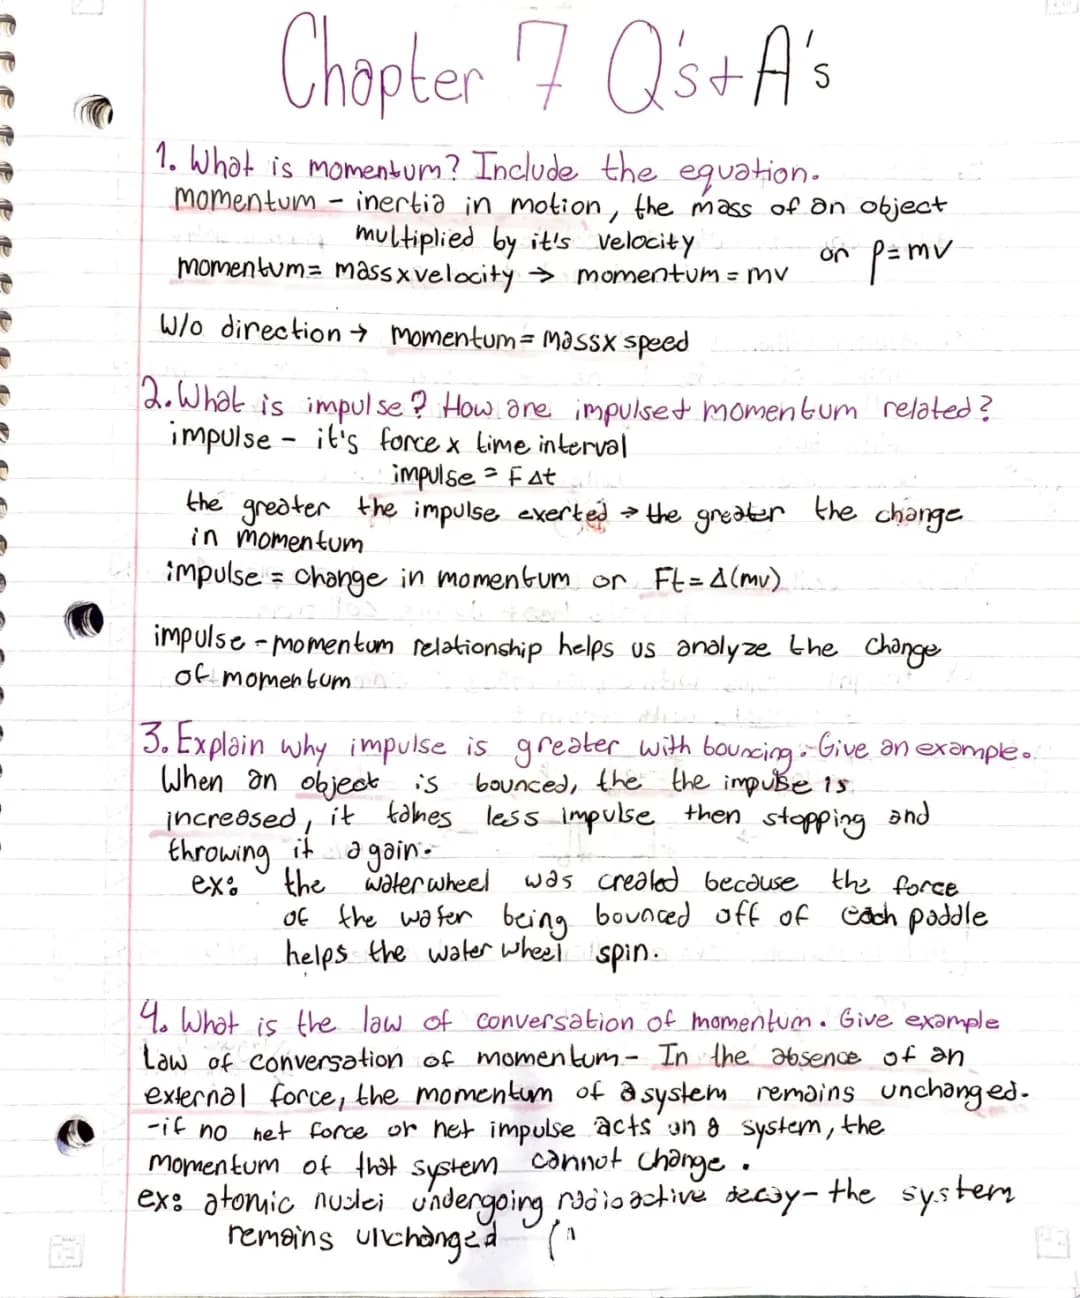 Chapter 7 Q's + A's
1. What is momentum? Include the equation.
momentum - inertia in motion, the mass of an object
multiplied by it's velocity
momentum = mass x velocity → momentum = mv or p = mv
W/o direction → momentum = mass x speed
2. What is impulse? How are impulse + momentum related?
impulse - it's force x time interval
impulse = F Δt
the greater the impulse exerted → the greater the change
in momentum
impulse = change in momentum or Ft = Δ(mv)
impulse - momentum relationship helps us analyze the change
of momentum
3. Explain why impulse is greater with bouncing. Give an example.
When an object is bounced, the the impulse is
increased, it takes less impulse then stopping and
throwing it again.
ex: the waterwheel was created because the force
of the water being bounced off of each paddle
helps the water wheel spin.
4. What is the law of conversation of momentum. Give example
Law of conversation of momentum - In the absence of an
external force, the momentum of a system remains unchanged.
- if no net force or net impulse acts on a system, the
momentum of that system cannot change.
ex: atomic nuclei undergoing radioactive decay - the system
remains unchanged (